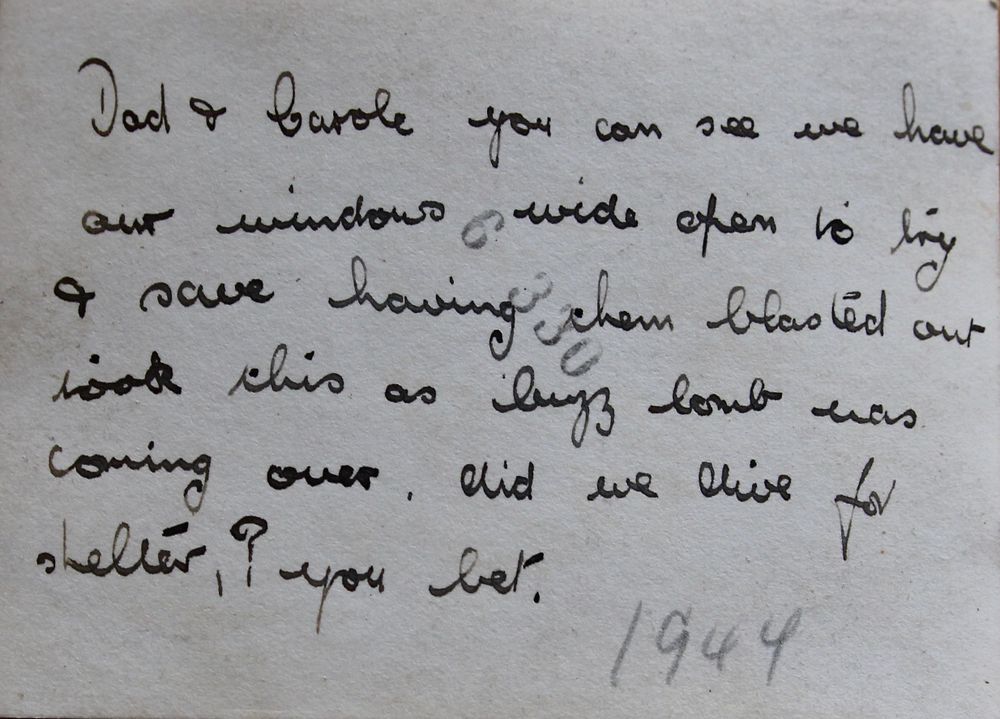 Dad & Carole you can see we have
our windows wide open to try
& save having them blasted out
took this as buzz bomb was
coming over, did we dive for
shelter,? you bet.
6330
1944